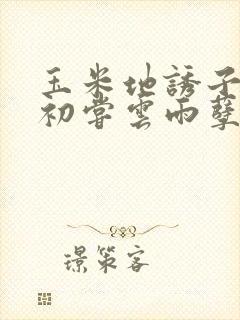 玉米地誘子
初嘗雲雨孽
璟策客